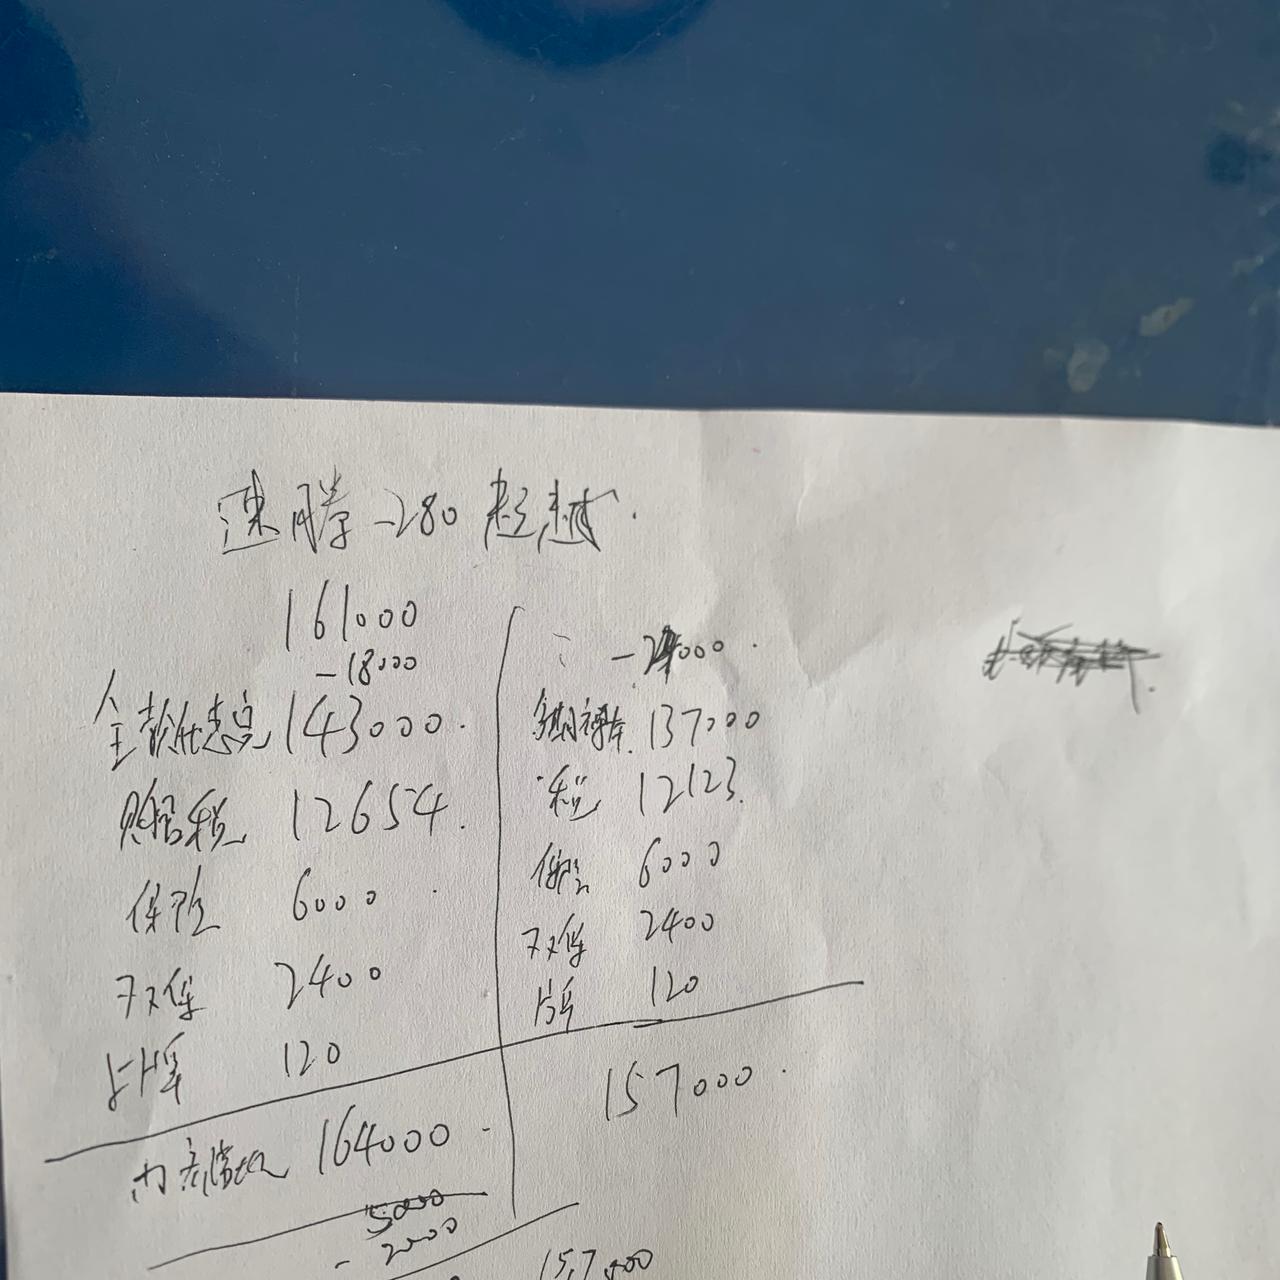 速腾-280超越.
161000
-18000
全款优惠完 143000.
购置税 12654.
保险 6000
双保 2400
上牌 120
164000
5000
- 2000
000 .
137000
税 12123.
保险 6000
双保 2400
牌 120
157000 .
157000